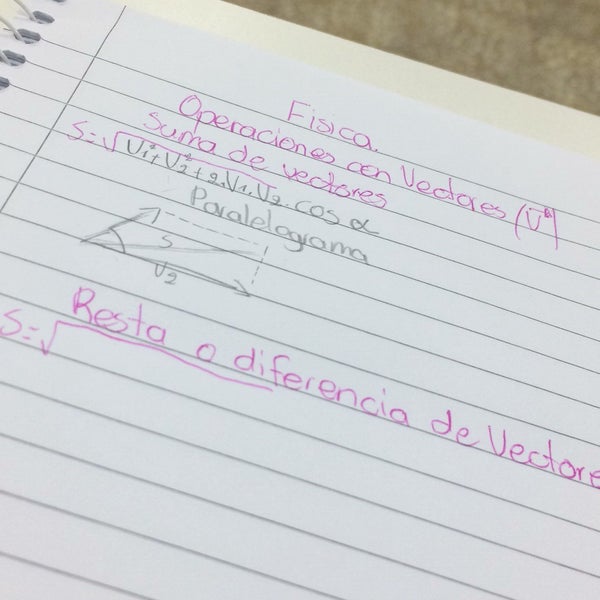 Fisica.
Operaciones con Vectores (V⃗)
Suma de vectores
S=√V₁²+V₂²+2.V₁.V₂.cos α
Paralelograma
S
V₂
Resta o diferencia de Vectore
S=√